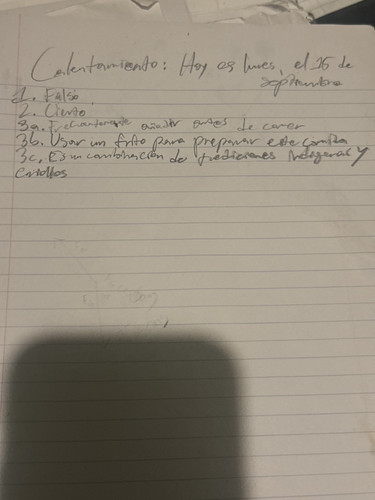 Calentamiento: Hoy es lunes, el 15 de
septiembre
1. Falso
2. Cierto
3a. añadir antes de comer
3b. Usar un frito para preparar este comida
3c. Es un combinación de tradiciones indigenas y
criollos